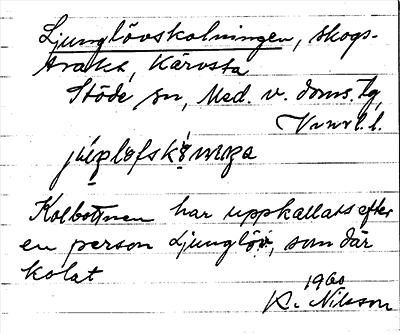 Ljunglövskolningen, skogs-
trakt, Kärvsta
Stöde sn, Med. v. doms. tg,
Vnorl. l.
Kolbottnen har uppkallats efter
en person Ljunglöv, som där
kolat
1960
K. Nilsson